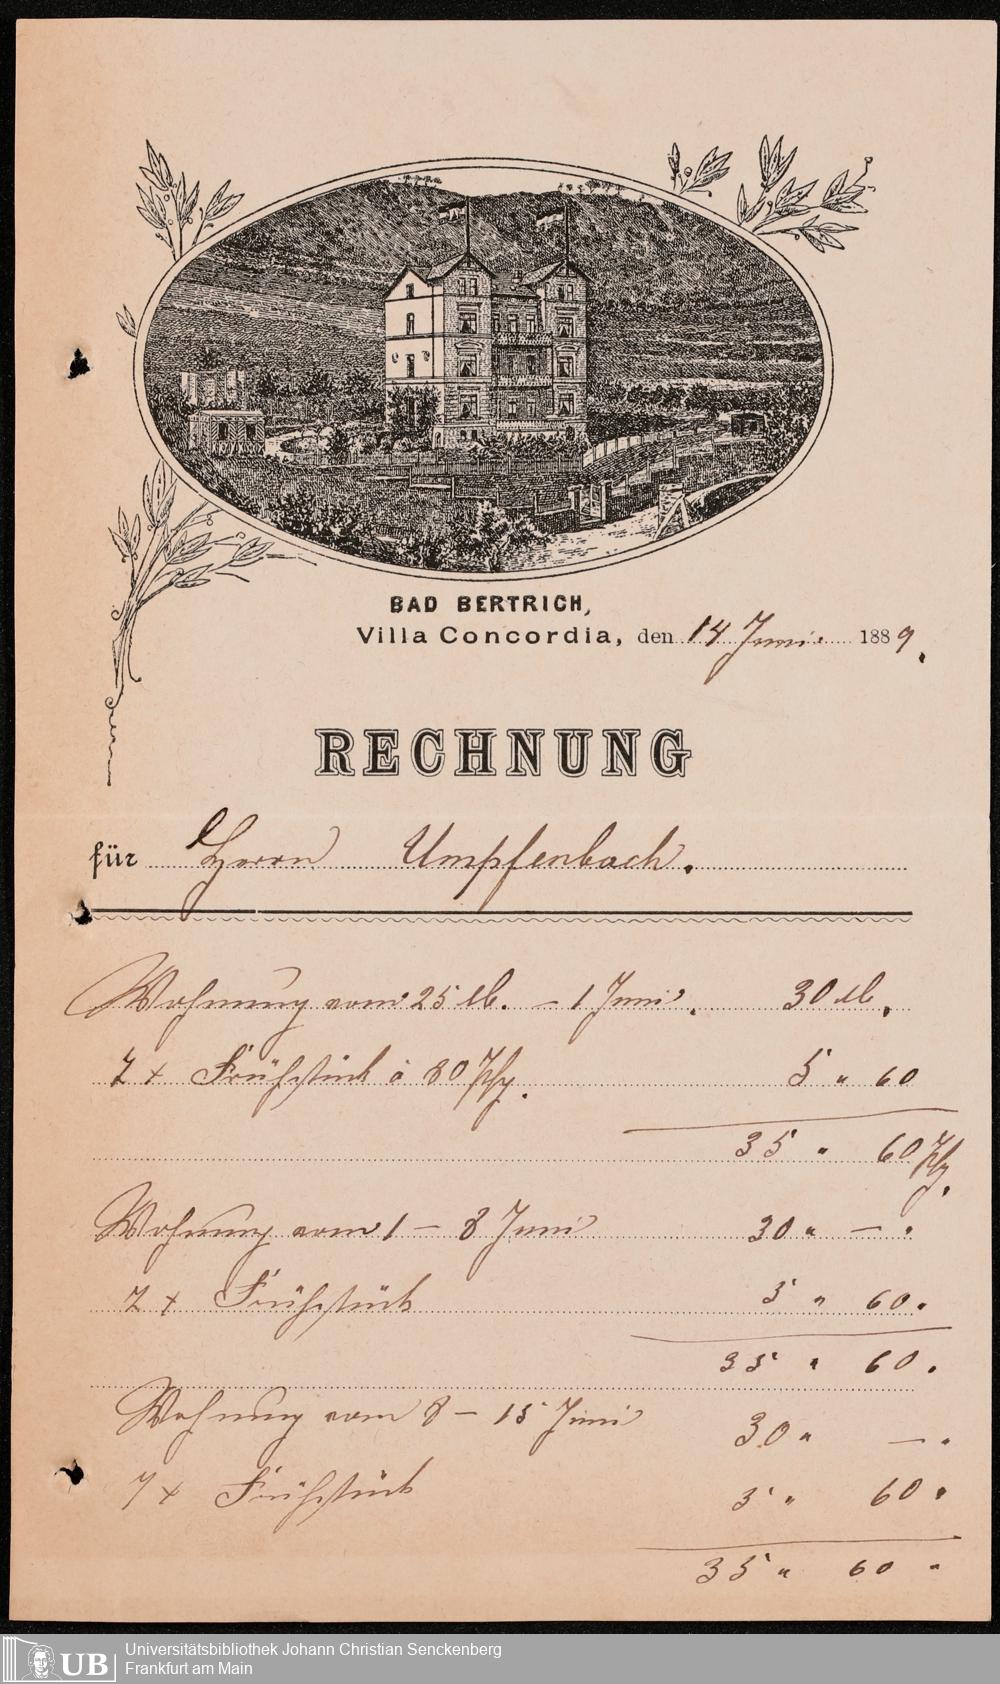 BAD BERTRICH,
Villa Concordia, den 14 Juni 1889.
RECHNUNG
für Herrn Umpfenbach.
Wohnung vom 25 - 1 Juni. 30 M.
7 x Frühstück à 80 Pfg. 5 " 60
35 " 60 Pfg.
Wohnung vom 1 - 8 Juni 30 " - "
7 x Frühstück 5 " 60 "
35 " 60 "
Wohnung vom 8 - 15 Juni 30 " - "
7 x Frühstück 5 " 60 "
35 " 60 "
UB Universitätsbibliothek Johann Christian Senckenberg
Frankfurt am Main